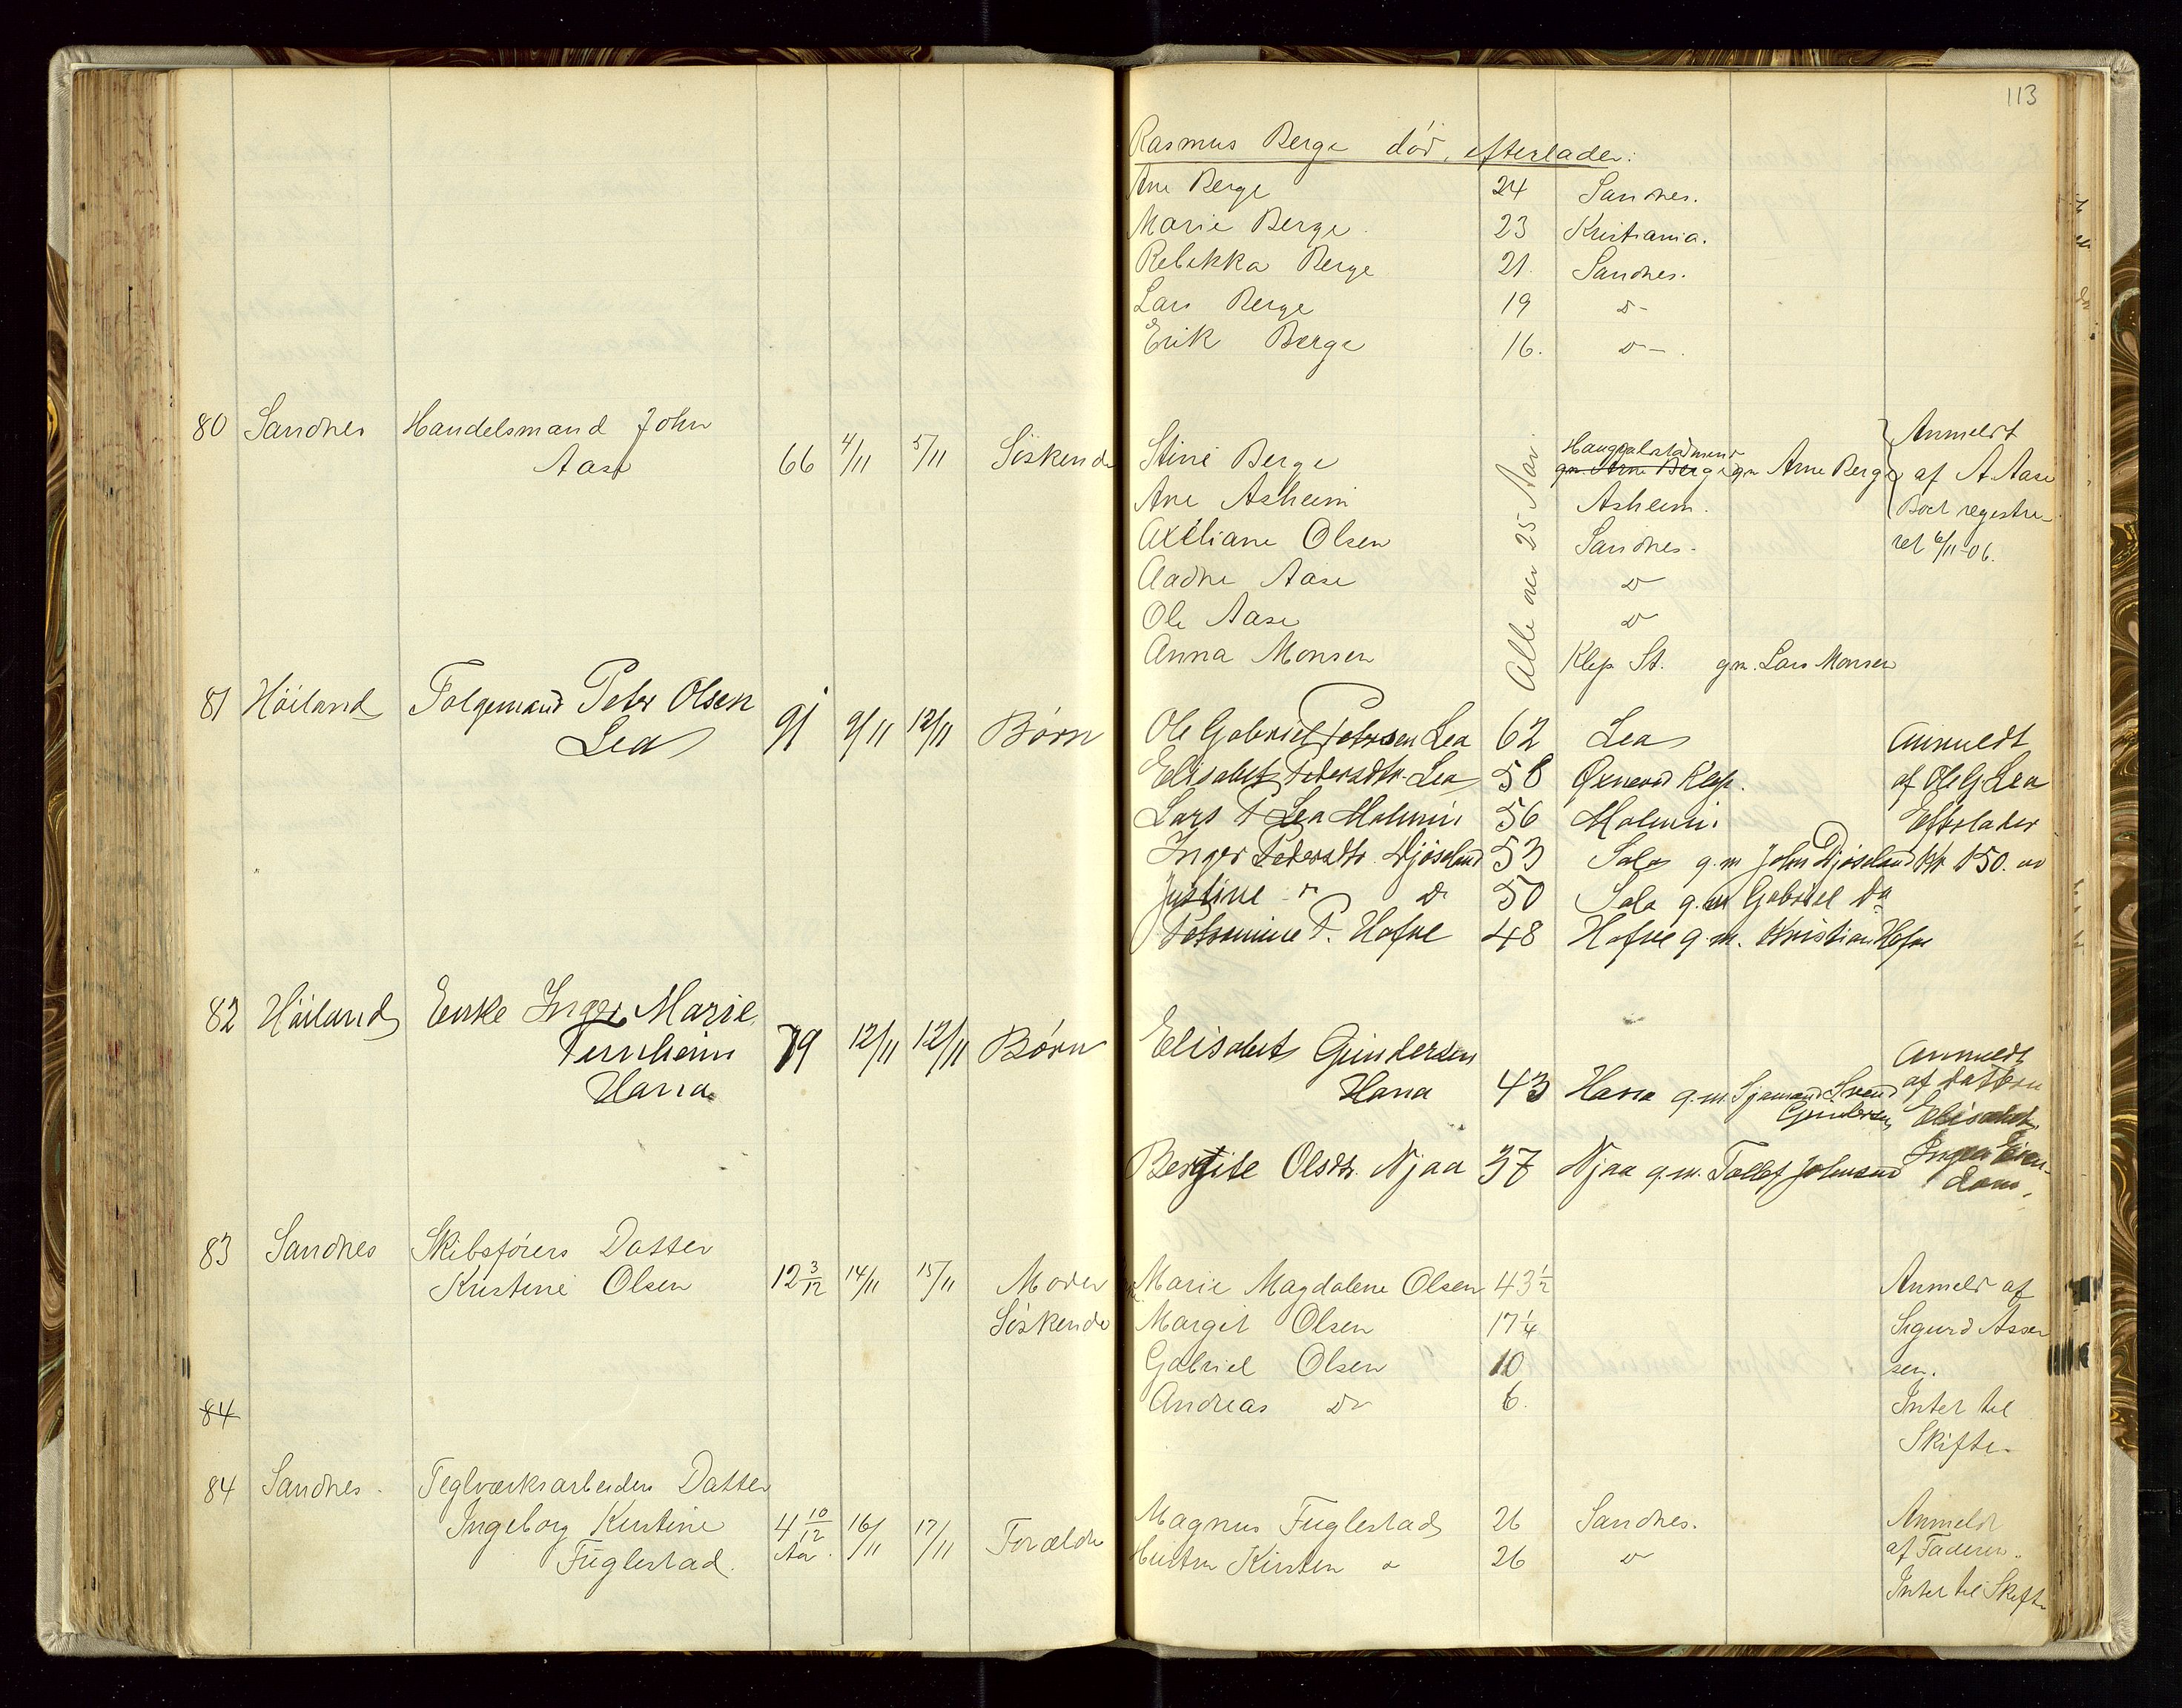 113
Rasmus Berge død, efterlader:
Ane Berge 24 Sandnes.
Marie Berge. 23 Kristiania.
Rebekka Berge 21. Sandnes.
Lars Berge 19 D-
Erik Berge 16. D-.
80 Sandnes Handelsmand John
Aase 66 4/11 5/11 Søskende
Stine Berge gm Arne Berge gm Arne Berge
Ane Asheim Asheim.
Axeliane Olsen Sandnes.
Aadne Aase D
Ole Aase D
Anna Monsen Klep St. gm. Lars Monsen
Alle over 25 Aar
Anmeldt
af A. Aase
Boet registre-
ret 6/11-06.
81 Höiland Folgemand Peter Olsen
Lea 91 9/11 12/11 Börn
Ole Gabriel Petersen Lea 62 Lea
Elisabet Pedersdtr. Lea 58 Klep.
Lars P Lea Malmin 56 Malmin
Inger Pedersdtr. Djöseland 53 Sola g.m John Djöseland
Justine " D 50 Sola g.m Gabriel Do
P. Hofve 48 Hofve g.m. Kristian Hofve
Anmeldt
af Ole G. Lea
Efterlader
Kr 150.
82 Höiland Enke Inger Marie
Hana 79 12/11 12/11 Börn
Elisabet Gundersen
Hana 43 Hana g.m. Sjømand Svend
Gundersen
Bergite Olsdtr. Njaa 37 Njaa g.m. Tollef Johnsen
Anmeldt
af Datteren
Elisabet.
Ingen Eien-
dom.
83 Sandnes Skibsførers Datter
Kristine Olsen 12 3/12 14/11 15/11 Moder
Søskende
Marie Magdalene Olsen 43 1/2
Margit Olsen 17 1/4
Gabriel Olsen 10
Andreas Do 6.
Anmeldt af
Sigurd Asser
sen.
Intet til
Skifte.
84
84 Sandnes. Teglværksarbeiders Datter
Ingeborg Kirstine 4 10/12 16/11 17/11 Forældre
Fuglestad. Aar.
Magnus Fuglestad 26 Sandnes.
Hustru Kirsten D 26 D
Anmeldt
af Faderen.
Intet til Skifte